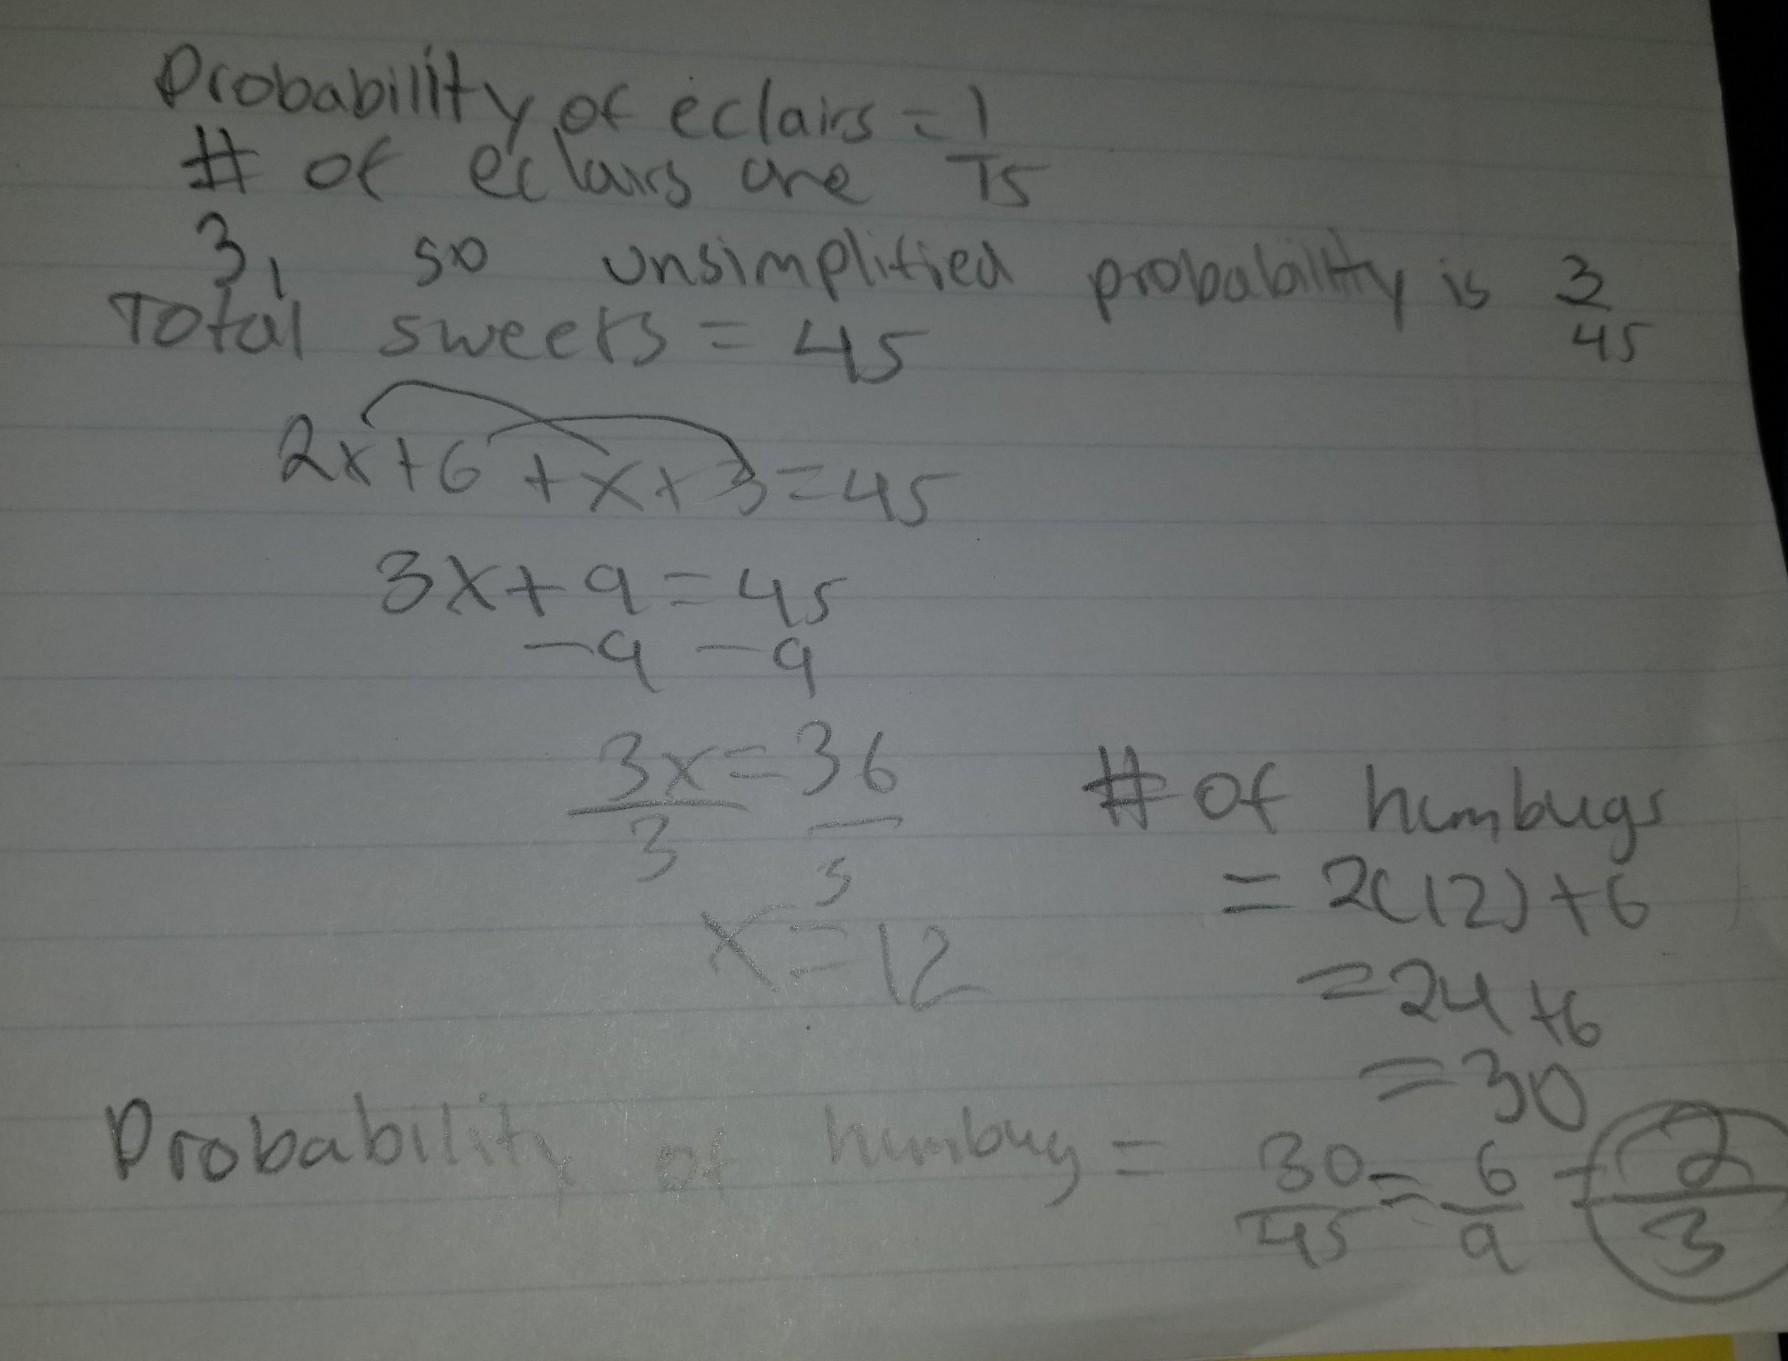 Probability of eclairs = 1/15
# of eclairs are
3, so unsimplified probability is 3/45
Total sweets = 45
2x+6+x+3=45
3x+9=45
-9 -9
3x=36
3 3
x=12
# of humbugs
= 2(12)+6
=24+6
=30
Probability of humbug = 30/45 = 6/9 = 2/3